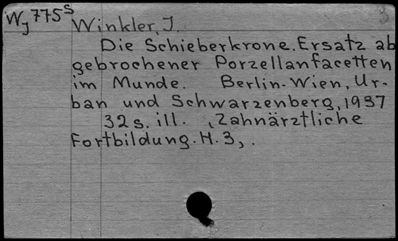 Wy 775 S
3
Winkler, J.
Die Schieberkrone. Ersatz ab
gebrochener Porzellanfacetten
im Munde. Berlin-Wien, Ur-
ban und Schwarzenberg, 1937
32 s. ill. , Zahnärztliche
Fortbildung. H. 3, .